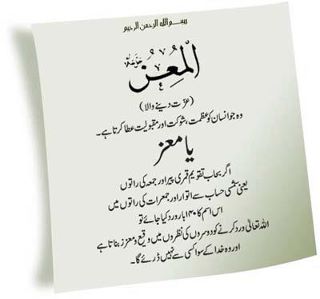 بسم اللہ الرحمن الرحیم
المُعِزُّ جل جلالہ
(عزت دینے والا)
وہ جو انسان کو عظمت، شوکت اور مقبولیت عطا کرتا ہے۔
یا معز
اگر بحساب تقویم قمری پیر اور جمعہ کی راتوں
یعنی شمسی حساب سے اتوار اور جمعرات کی راتوں میں
اس اسم کا ۱۴۰ بار ورد کیا جائے تو
اللہ تعالیٰ ورد کرنے کو دوسروں کی نظروں میں وقیع و معزز بناتا ہے
اور وہ خدا کے سوا کسی سے نہیں ڈرے گا۔